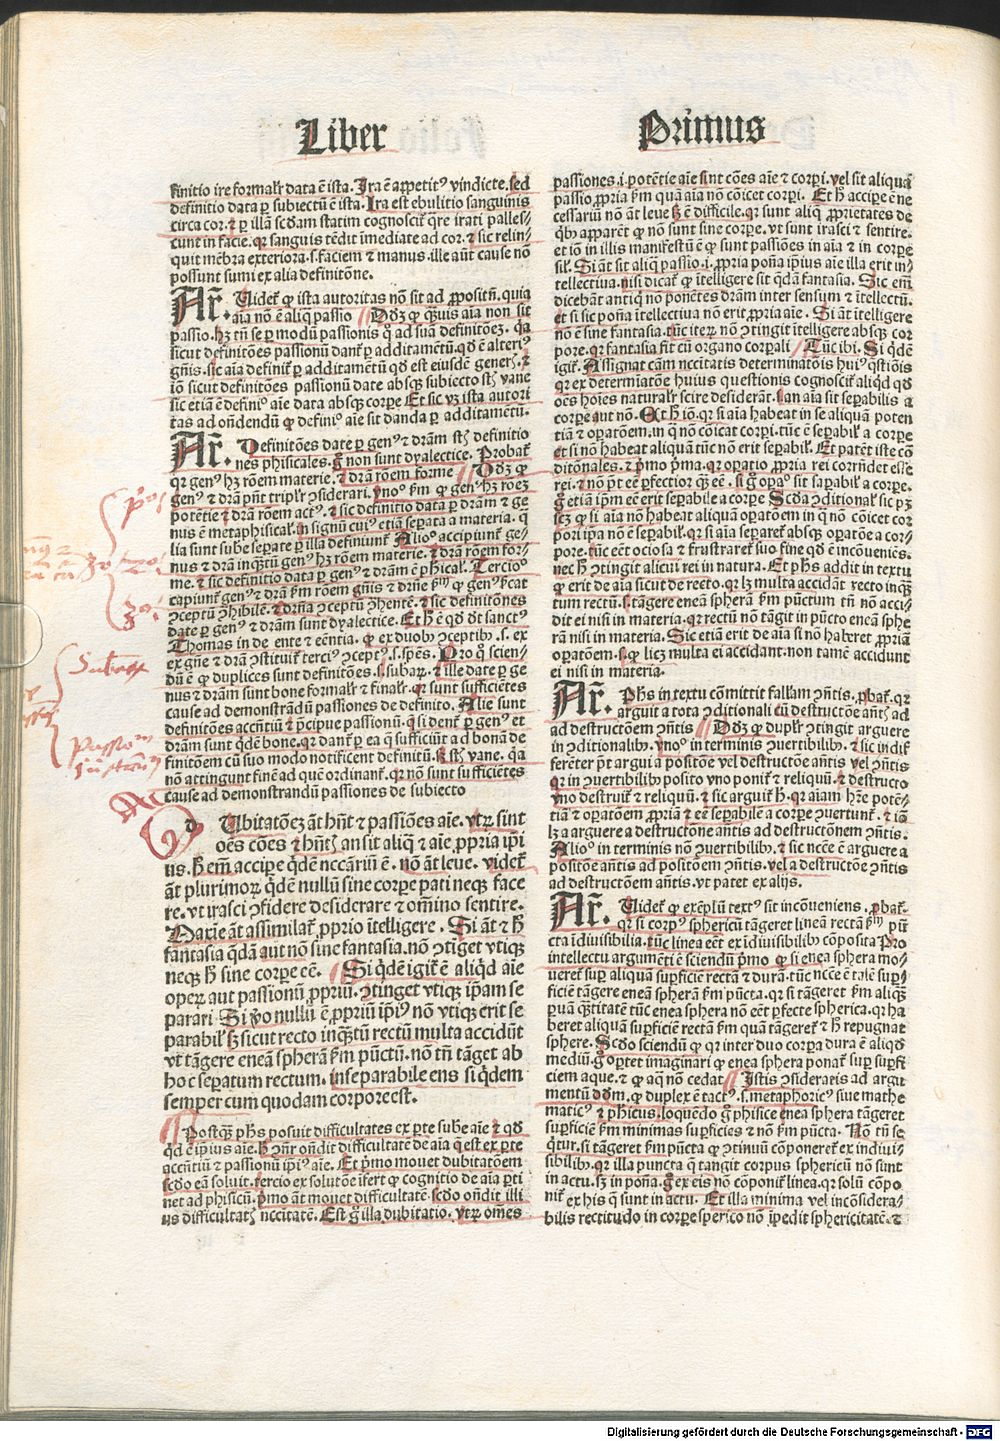 Liber Primus
finitio ire formalr̃ data ẽ ista. Ira ẽ appetitꝰ vindicte. sed
definitio data ꝑ subiectũ ẽ ista. Ira est ebulitio sanguinis
circa cor. ⁊ ꝑ illã scđam statim cognoscit᷑ qre irati palles-
cunt in facie. qꝛ sanguis tẽdit ĩmediate ad cor. ⁊ sic relin-
quit mẽbra exteriora. s. faciem ⁊ manus. ille aũt cause nõ
possunt sumi ex alia definitõne.
Ar̃. Uidet᷑ ꝙ ista autoritas nõ sit ad ꝓpositũ. quia
aĩa nõ ẽ aliq̃ passio Dõꝫ ꝙ q̃uis aĩa non sit
passio. hꝫ tñ se ꝑ modũ passionis q̃ ad suã definitõeꝫ. q̃a
sicut definitões passionũ dant᷑ ꝑ additamẽtũ. qđ ẽ alteriꝰ
gñis. sic aĩa definit᷑ ꝑ additamẽtũ qđ est eiusdẽ generꝭ. ⁊
iõ sicut definitões passionũ date absqꝫ subiecto st̃ vane
sic etiã ẽ definĩo aĩe data absqꝫ corpe Et sic vꝫ ista autori
tas ad oñdendũ ꝙ definĩo aĩe sit danda ꝑ additamẽtũ.
Ar̃. Definitões date ꝑ genꝰ ⁊ drãm st̃ definitio
nes phisicales. g̃ non sunt dyalectice. Probat᷑
qꝛ genꝰ hꝫ rõem materie. ⁊ drã rõem forme Dõꝫ ꝙ
genꝰ ⁊ drã pñt triplr̃ ꝯsiderari. vnoº km̃ ꝙ genꝰ hꝫ roeꝫ
potẽtie ⁊ drã rõem actꝰ. ⁊ sic definitio data ꝑ drãm ⁊ ge
nus ẽ metaphisical. in signũ cuiꝰ etiã seꝑata a materia. q̃
lia sunt sube seꝑate ꝑ illã definiunt᷑ Alioº accipiunt᷑ ge-
nus ⁊ drã inq̃tũ genꝰ hꝫ rõem materie. ⁊ drã rõem for-
me. ⁊ sic definitio data ꝑ genꝰ ⁊ drãm ẽ phical. Tercioº
capiunt᷑ genꝰ ⁊ drã km̃ roẽm gñis ⁊ drñe km̃ ꝙ genꝰ dicat
ꝯceptũ ꝯhibilẽ. ⁊ drña ꝯceptũ ꝯhentẽ. ⁊ sic definitõnes
date ꝑ genꝰ ⁊ drãm sunt dyalectice. Et h̃ ẽ qđ đt sanctꝰ
Thomas in de ente ⁊ eẽntia. ꝙ ex duobꝰ ꝯceptibꝰ. s. ex
ex gñe ⁊ drã ꝯstituit᷑ terciꝰ ꝯceptꝰ. s. sp̃es. Pro q̃ scien-
dũ ẽ ꝙ duplices sunt definitões. s. subaꝝ. ⁊ ille date ꝑ ge
nus ⁊ drãm sunt bone formalr̃ ⁊ finalr̃. qꝛ sunt sufficiẽtes
cause ad demonstrãdũ passiones de definito. Alie sunt
definitões accñtiũ ⁊ p̃ncipue passionũ. q̃ si dent᷑ ꝑ genꝰ et
drãm sunt q̃dẽ bone. qꝛ dant᷑ ꝑ ea q̃ sufficiũt ad bonã de
finitõem cũ suo modo notificent definitũ. sꝫ st̃ vane. q̃a
nõ attingunt finẽ ad quẽ ordinant᷑. qꝛ nõ sunt sufficiẽtes
cause ad demonstrandũ passiones de subiecto
Dubitatõeꝫ ãt hñt ⁊ passiões aĩe. vtꝝ sint
oẽs cões ⁊ hñtꝭ an sit aliq̃ ⁊ aĩe ꝓpria ipĩ
us. h̃ em̃ accipe q̃dẽ nccãriũ ẽ. nõ ãt leue. videt᷑
ãt plurimoꝝ q̃dẽ nullũ sine corꝑe pati neqꝫ face
re. vt irasci ꝯfidere desiderare ⁊ om̃ino sentire.
Maxie ãt assimilat᷑ ꝓprio ĩtelligere. Si ãt ⁊ h̃
fantasia q̃dã aut nõ sine fantasia. nõ ꝯtiget vtiqꝫ
neqꝫ h̃ sine corꝑe eẽ. Si q̃dẽ igit᷑ ẽ aliq̃d aĩe
opeꝝ aut passionũ ꝓpriũ. ꝯtinget vtiqꝫ ip̃am se
parari Si ṽo nullũ ẽ ꝓpriũ ipĩꝰ nõ vtiqꝫ erit se
parabil᷑ sꝫ sicut recto inqꝫtũ rectũ multa accidũt
vt tãgere eneã spherã km̃ pũctũ. nõ tñ tãget ab
hoc seꝑatum rectum. inseparabile ens si q̃dem
semper cum quodam corpore est.
Postqꝫ ph̃s posuit difficultates ex ꝑte sube aĩe ⁊ qđ
q̃d ẽ ipĩus aĩe. h̃ ꝯñr oñdit difficultatẽ de aĩa q̃ est ex ꝑte
accñtiũ ⁊ passionũ ipĩꝰ aĩe. Et p̃mo mouet dubitatõem
scđo eã soluit. tercio ex solutõe ĩfert ꝙ cognitio de aĩa ꝑti
net ad phisicũ. p̃mo ãt mouet difficultatẽ scđo oñdit illi
us difficultatꝭ nccitatẽ. Est g̃ illa dubitatio. vtꝝ om̃es
passiones. i. potẽtie aĩe sint cões aĩe ⁊ corꝑi. vel sit aliqua
passio ꝓpria km̃ quã aĩa nõ cõicet corꝑi. Et h̃ accipe ẽ ne
cessariũ nõ ãt leue sꝫ ẽ difficile. qꝛ sunt aliq̃ ꝓprietates de
q̃bꝰ apparẽt ꝙ nõ sunt sine corꝑe. vt sunt irasci ⁊ sentire.
et iõ in illis manifestũ ẽ ꝙ sunt passiões in aĩa ⁊ in corꝑe
sil᷑. Si ãt sit aliq̃ passio. i. ꝓpria poña ipĩus aĩe illa erit in-
tellectiua. nisi dicat᷑ ꝙ ĩtelligere sit q̃dã fantasia. Sic em̃
dicebãt antiq̃ nõ ponẽtes drãm inter sensum ⁊ ĩtellectũ.
et si sic poña ĩtellectiua nõ erit ꝓpria aĩe. Si ãt ĩtelligere
nõ ẽ sine fantasia. tũc iteꝝ nõ ꝯtingit ĩtelligere absqꝫ cor
pore. qꝛ fantasia fit cũ organo corꝑali Tũc ibi. Si q̃dẽ
igit᷑. Assignat cãm nccitatis determinatõis huiꝰ q̃stiõis
qꝛ ex determĩatõe huius questionis cognoscit᷑ aliq̃d qđ
oẽs hoĩes naturalr̃ scire desiderãt. s. an aĩa sit seꝑabilis a
corꝑe aut nõ. Et h̃ iõ. qꝛ si aĩa habeat in se aliquã poten
tiã ⁊ oꝑatõem. in q̃ nõ cõicat corꝑi. tũc ẽ seꝑabil᷑ a corꝑe
et si nõ habeat aliquã tũc nõ erit seꝑabil᷑. Et patẽt iste cõ
ditõnales. ⁊ p̃mo p̃ma. qꝛ oꝑatio ꝓpria rei corrñdet esse
rei. ⁊ nõ p̃t eẽ ꝑfectior q̃ eẽ. si g̃ opaº sit saꝑabil᷑ a corꝑe.
g̃ eti ipm̃ eẽ erit seꝑabile a corꝑe Scđa ꝯditional᷑ sic pꝫ
sequit᷑ ꝙ si aĩa nõ habeat aliquã oꝑatõem in q̃ nõ cõicet cor
pori ipa nõ ẽ seꝑabil᷑. qꝛ si aĩa seꝑaret᷑ absqꝫ oꝑatõe a cor-
pore. tũc eẽt ociosa ⁊ frustraret᷑ suo fine qđ ẽ incõueniẽs.
nec h̃ ꝯtingit alicui rei in natura. Et ph̃s addit in textu
ꝙ erit de aĩa sicut de recto. qꝛ lꝫ multa accidãt recto inqꝫ
tum rectũ. s. tãgere eneã spherã km̃ pũctum tñ nõ acci-
dit ei nisi in materia. qꝛ rectũ nõ tãgit in pũcto eneã sphe
rã nisi in materia. Sic etiã erit de aĩa si nõ haberet ꝓpriã
oꝑatõem. s. ꝙ licꝫ multa ei accidant. non tamẽ accidunt
ei nisi in materia.
Ar̃. Ph̃s in textu cõmittit fallam ꝯñtis. ꝓbat᷑. qꝛ
arguit a tota ꝯditionali cũ destructõe añtꝭ ad
ad destructõem ꝯñtis Dõꝫ ꝙ duplr̃ ꝯtingit arguere
in ꝯditionalibꝰ. vnoº in terminis ꝯuertibilibꝰ. ⁊ sic indif
ferẽter p̃t argui a positõe vel destructõe añtis vel ꝯñtis
qꝛ in ꝯuertibilibꝰ posito vno ponit᷑ ⁊ reliquũ. ⁊ destructo
vno destruit᷑ ⁊ reliquũ. ⁊ sic arguit h̃. qꝛ aĩam hr̃e potẽ-
tiã ⁊ oꝑatõem ꝓpriã ⁊ eẽ seꝑabilẽ a corꝑe ꝯuertunt᷑. ⁊ iõ
lꝫ a arguere a destructõne añtis ad destructõnem ꝯñtis.
Alioº in terminis nõ ꝯuertibilibꝰ. ⁊ sic ncẽe ẽ arguere a
positõe añtis ad positõem ꝯñtis. vel a destructõe ꝯñtis
ad destructõem añtis. vt patet ex alijs.
Ar̃. Uidet᷑ ꝙ exẽplũ textꝰ sit incõueniens. ꝓbat᷑.
qꝛ si corpꝰ sphericũ tãgeret lineã rectã km̃ pũ
cta idiuisibilia. tũc linea eẽt ex idiuisibilibꝰ cõposita Pro
intellectu argumẽti ẽ sciendũ p̃mo ꝙ si enea sphera mo-
ueret᷑ suꝑ aliqua suꝑficie rectã ⁊ durã. tũc ncẽe ẽ talẽ suꝑ-
ficiẽ tãgere eneã spherã km̃ pũcta. qꝛ si tãgeret km̃ aliqꝫ
ꝑuã q̃titatẽ tũc enea sphera nõ eẽt ꝑfecte spherica. qꝛ ha
beret aliquã suꝑficiẽ rectã km̃ quã tãgeret᷑ ⁊ h̃ repugnat
sphere. Scđo sciendũ ꝙ qꝛ inter duo corꝑa dura ẽ aliqđ
mediũ. g̃ oꝑtet imaginari ꝙ enea sphera ponat᷑ suꝑ suꝑfi
ciem aque. ⁊ ꝙ aq̃ nõ cedat Istis ꝯsideratis ad argu
mentũ đõm. ꝙ duplex ẽ tactꝰ. s. metaphoricꝰ siue mathe
maticꝰ ⁊ phicus. loquedo g̃ phisice enea sphera tãgeret
suꝑficiẽ km̃ minimas suꝑficies ⁊ nõ km̃ pũcta. Nõ tñ se
q̃tur. si tãgeret km̃ pũcta ꝙ ꝯtinuũ cõponeret᷑ ex indiui-
sibilibꝰ. qꝛ illa puncta q̃ tangit corpus sphericũ nõ sunt
in actu. sꝫ in poña. g̃ ex eis nõ cõponit᷑ linea. qꝛ solũ cõpo
nit᷑ ex his q̃ sunt in actu. Et illa minima vel incõsidera-
bilis rectitudo in corꝑe sperico nõ ĩpedit sphericitatẽ. ⁊
pº
2º
3º
Passio
Digitalisierung gefördert durch die Deutsche Forschungsgemeinschaft - DFG